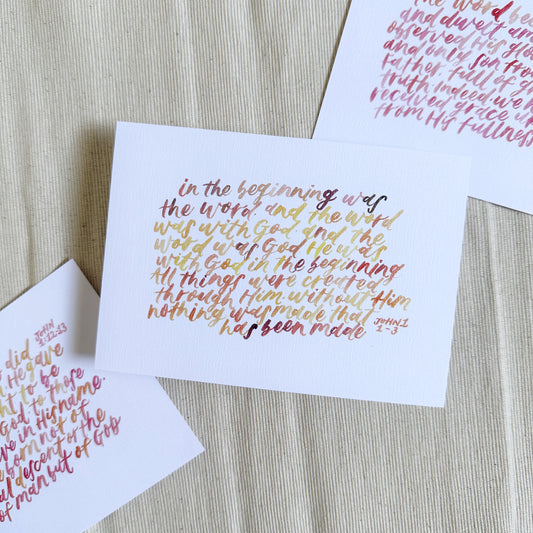 in the beginning was
the word, and the word
was with God, and the
word was God. He was
with God in the beginning
All things were created
through Him. without Him
nothing was made that
has been made
JOHN 1
1-3
the word
and dwelt
observed His
and only son from
Father. Full of
truth. Indeed, we
received grace
from His fullness
JOHN
1:12-13
did
He gave
to be
God, to those
in His name.
born not of
descent or the
of man but of God